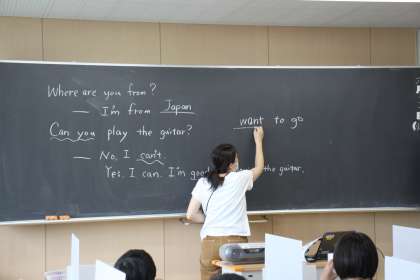 Where are you from?
— I'm from Japan
Can you play the guitar?
— No, I can't.
Yes. I can. I'm the guitar.
want to go